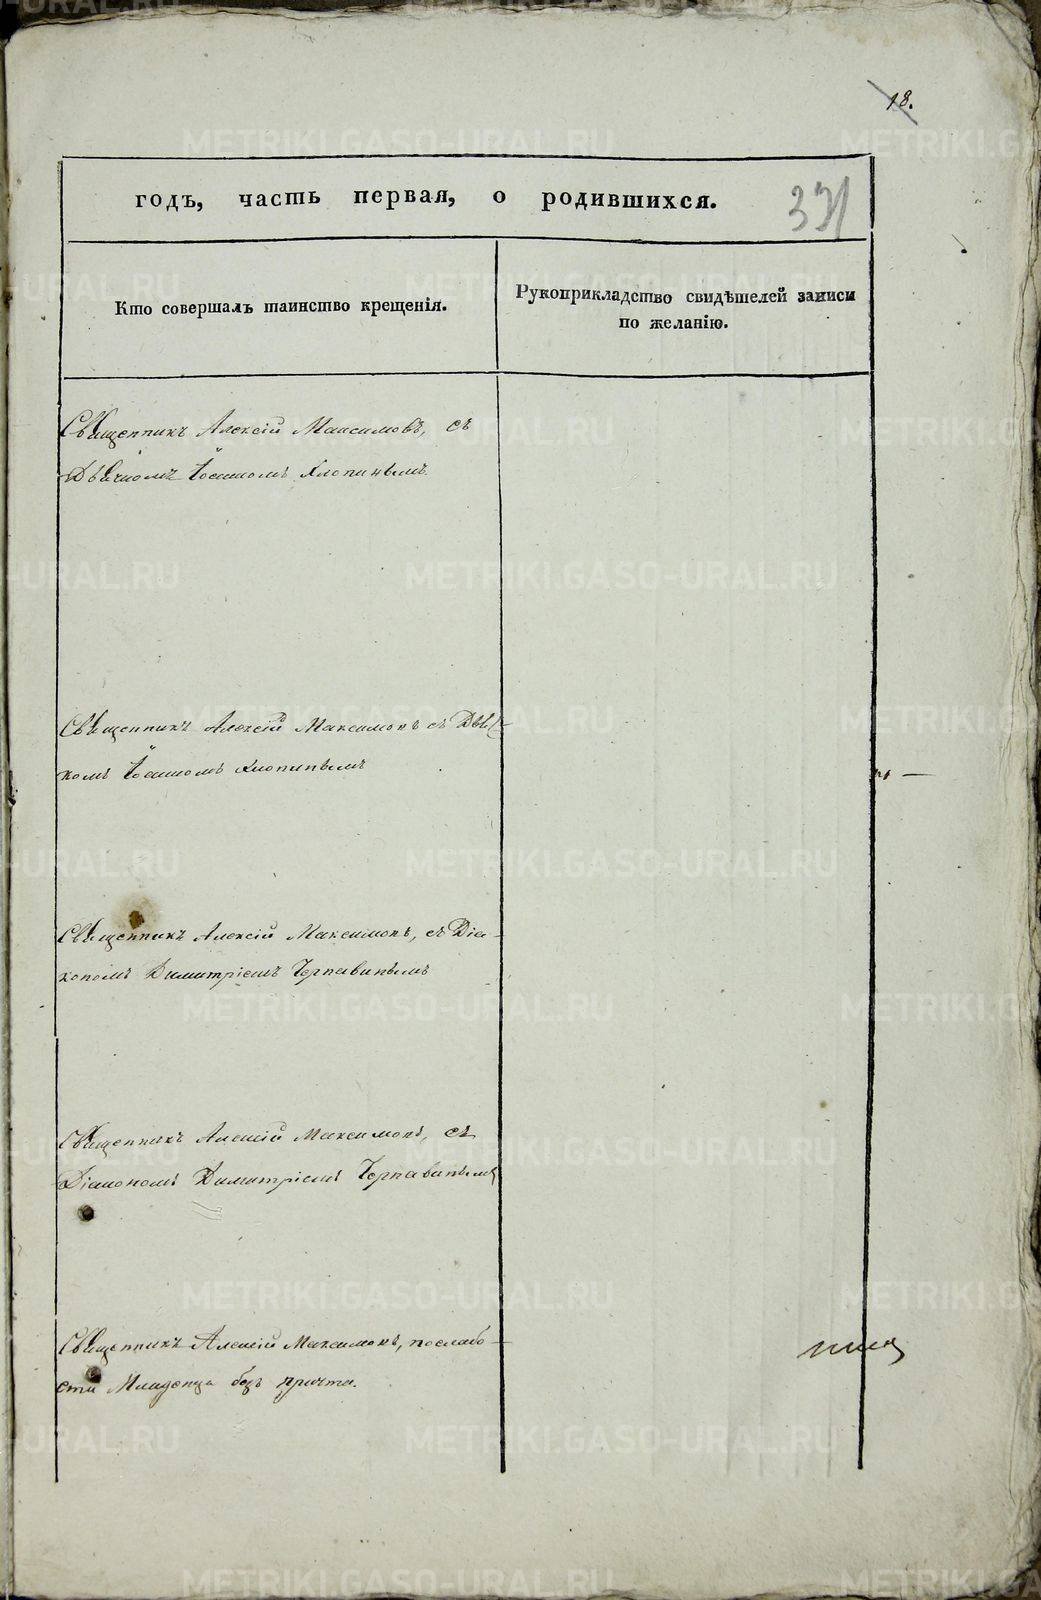 18.
годъ, часть первая, о родившихся.
331
Кто совершалъ таинство крещенія.
Рукоприкладство свидѣтелей записи
по желанію.
Священникъ Алексій Максимовъ, съ
Дьячкомъ Іоанномъ Хлопинымъ.
Священникъ Алексій Максимовъ съ Дьяч-
комъ Іоанномъ Хлопинымъ
Священникъ Алексій Максимовъ, съ Діа-
кономъ Димитріемъ Чернавинымъ
Священникъ Алексій Максимовъ, съ
Діакономъ Димитріемъ Чернавинымъ
Священникъ Алексій Максимовъ, послабо-
сти Младенца безъ причта.
METRIKI.GASO-URAL.RU